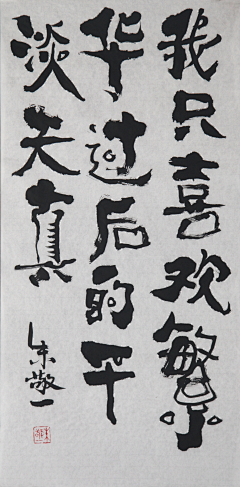 我只喜欢繁
华过后的平
淡天真
朱敬一